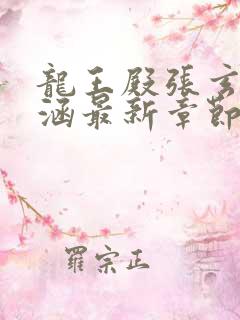 龍王殿張玄
涵最新章節
羅宗正